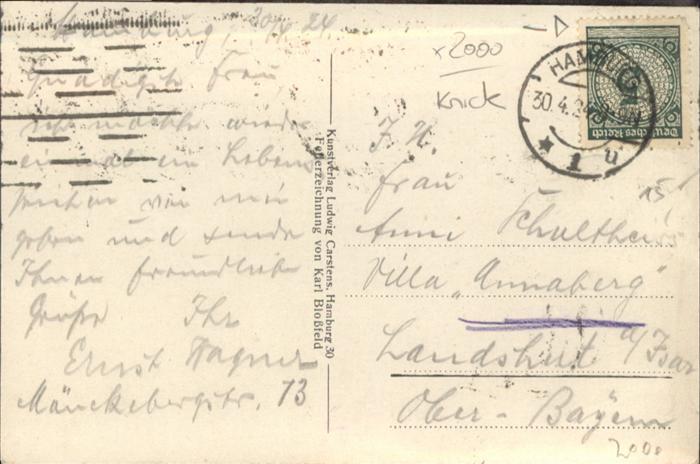 Hamburg, 30/4 24
Gnädigste Frau,
ich möchte wieder
einmal ein Lebens
zeichen von mir
geben und sende
Ihnen freundliche
Grüße Ihr
Ernst Wagner
Mönckebergstr. 13
Kunstverlag Ludwig Carstens, Hamburg 30
Federzeichnung von Karl Bloßfeld
x 2000
Knick
HAMBURG
30.4.24
* 1 u
Deutsches Reich
Frau
Anni Schultheiss
Villa „Annaberg"
Landshut a/Isar
Ober-Bayern
15
2000